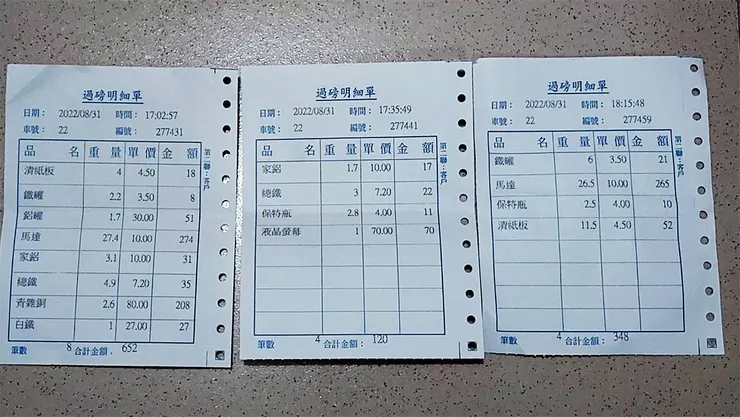 過磅明細單
日期： 2022/08/31 時間： 17:02:57
車號： 22 編號： 277431
品名 重量 單價 金額
清紙板 4 4.50 18
鐵罐 2.2 3.50 8
鋁罐 1.7 30.00 51
馬達 27.4 10.00 274
家鋁 3.1 10.00 31
總鐵 4.9 7.20 35
青雜銅 2.6 80.00 208
白鐵 1 27.00 27
筆數 8 合計金額： 652
第二聯：客戶
過磅明細單
日期： 2022/08/31 時間： 17:35:49
車號： 22 編號： 277441
品名 重量 單價 金額
家鋁 1.7 10.00 17
總鐵 3 7.20 22
保特瓶 2.8 4.00 11
液晶螢幕 1 70.00 70
筆數 4 合計金額： 120
第二聯：客戶
過磅明細單
日期： 2022/08/31 時間： 18:15:48
車號： 22 編號： 277459
品名 重量 單價 金額
鐵罐 6 3.50 21
馬達 26.5 10.00 265
保特瓶 2.5 4.00 10
清紙板 11.5 4.50 52
筆數 4 合計金額： 348
第二聯：客戶